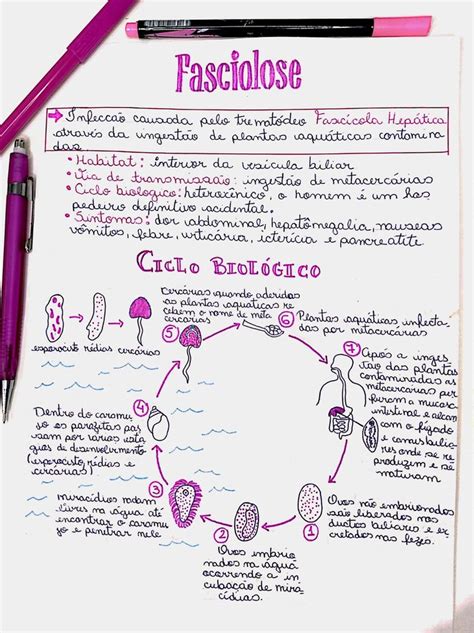 Fasciolose
→ Infeccão causada pelo trematódeo Fascícola Hepática
através da ingestão de plantas aquáticas contamina
das.
• Habitat: interior da vesícula biliar
• Via de transmissão: ingestão de metacercárias
• Ciclo biológico: heteroxênico, o homem é um hos
pedeiro definitivo acidental.
• Sintomas: dor abdominal, hepatomegalia, nauseas
vômitos, febre, urticária, icterícia e pancreatite
Ciclo Biológico
Cercárias quando aderidas
as plantas aquáticas re
cebem o nome de meta
cercárias
esporocisto rídias cercárias
5
6
Plantas aquáticas infecta
das por metacercárias
7
Após a inges
tão das plantas
contaminadas as
metacercárias per
furam a mucosa
intestinal e alcam
com o fígado
e canais bilia
res onde se re
produzem e se
maturam
4
Dentro do caramu
jo os parasitas pas
sam por vários está
gios de desenvolvimento
(esporocisto, rídias e
cercárias)
3
miracídios nadam
livres na água até
encontrar o caramu
jo e penetrar nele
2
Ovos embrio
nados na água
ocorrendo a in
cubação de mira
cídios.
1
Ovos não embrionados
são liberados nos
ductos biliares e ex
cretados nas fezes.